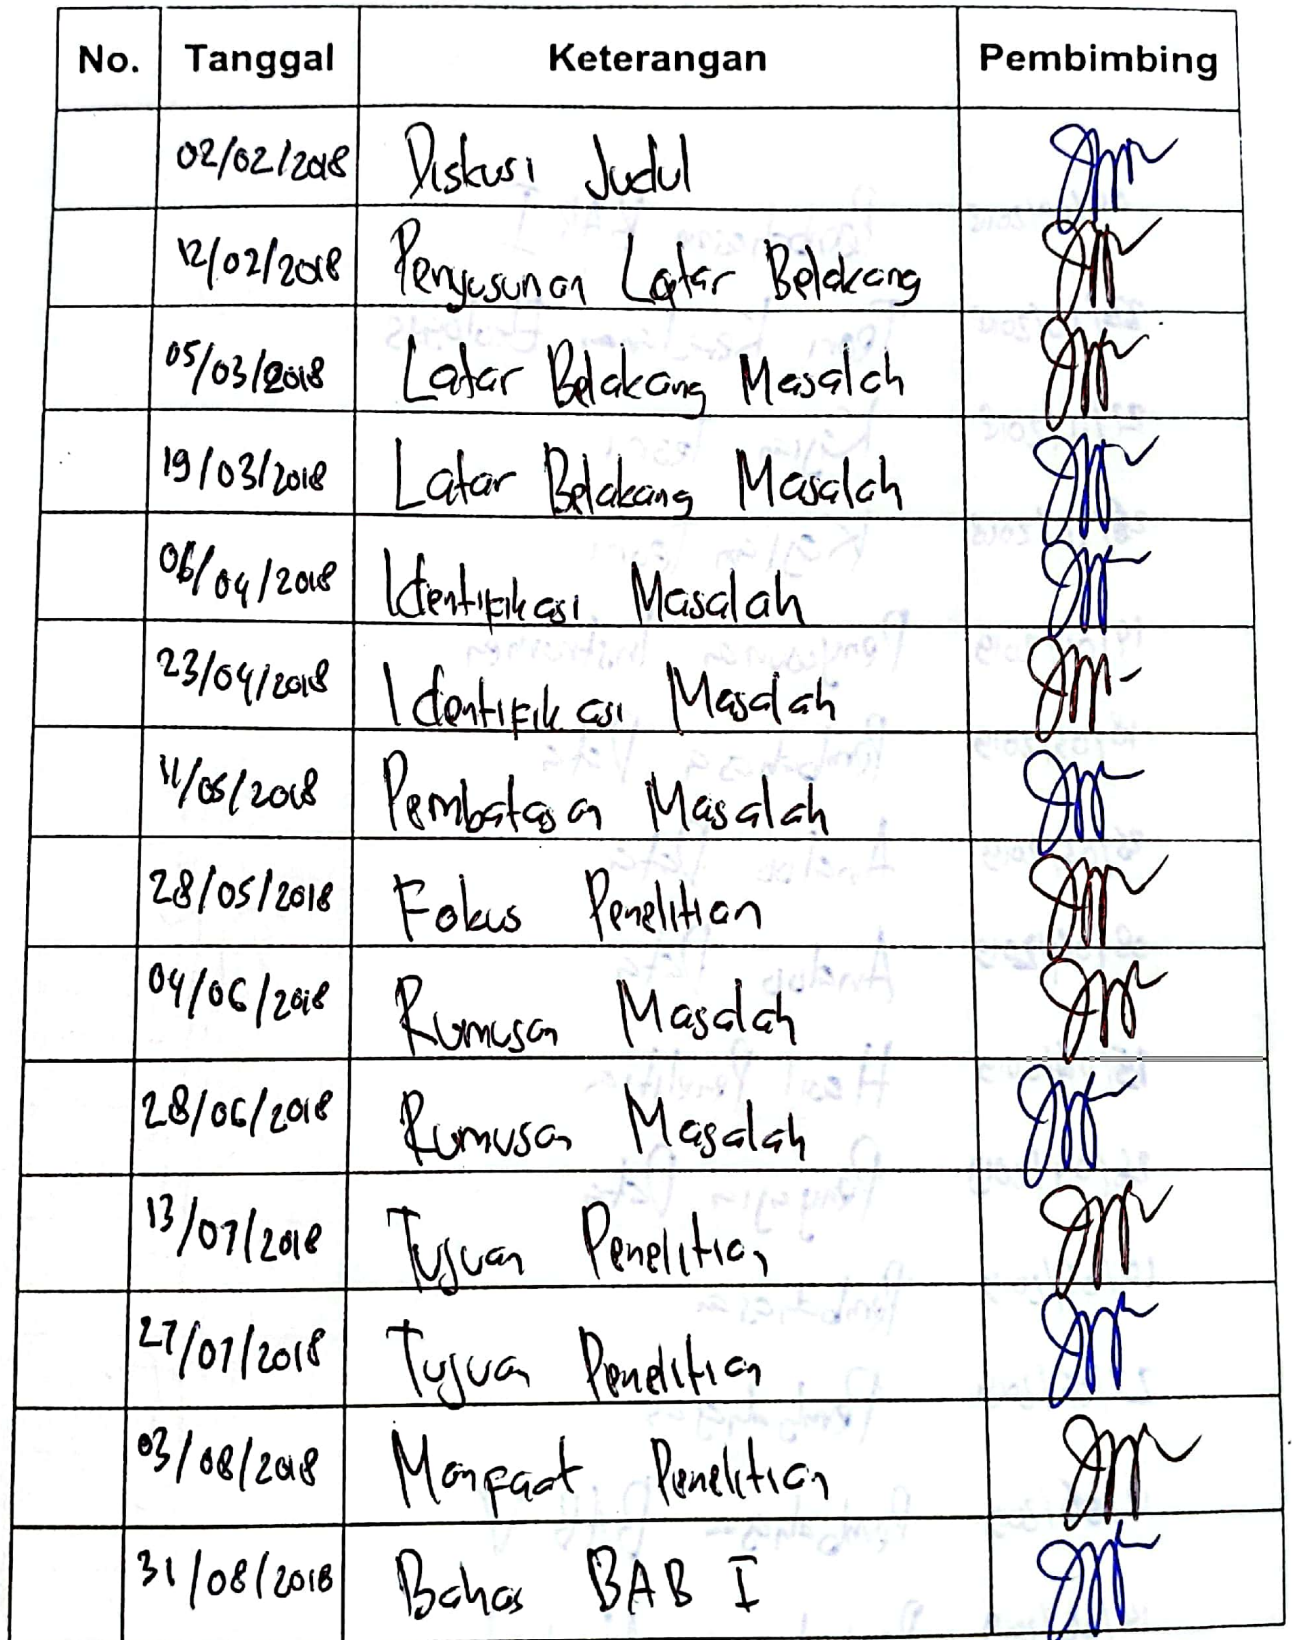 No. Tanggal Keterangan Pembimbing
02/02/2018 Diskusi Judul
12/02/2018 Penyusunan Latar Belakang
05/03/2018 Latar Belakang Masalah
19/03/2018 Latar Belakang Masalah
06/04/2018 Identifikasi Masalah
23/04/2018 Identifikasi Masalah
11/05/2018 Pembatasan Masalah
28/05/2018 Fokus Penelitian
04/06/2018 Rumusan Masalah
28/06/2018 Rumusan Masalah
13/07/2018 Tujuan Penelitian
27/07/2018 Tujuan Penelitian
03/08/2018 Manfaat Penelitian
31/08/2018 Bahas BAB I